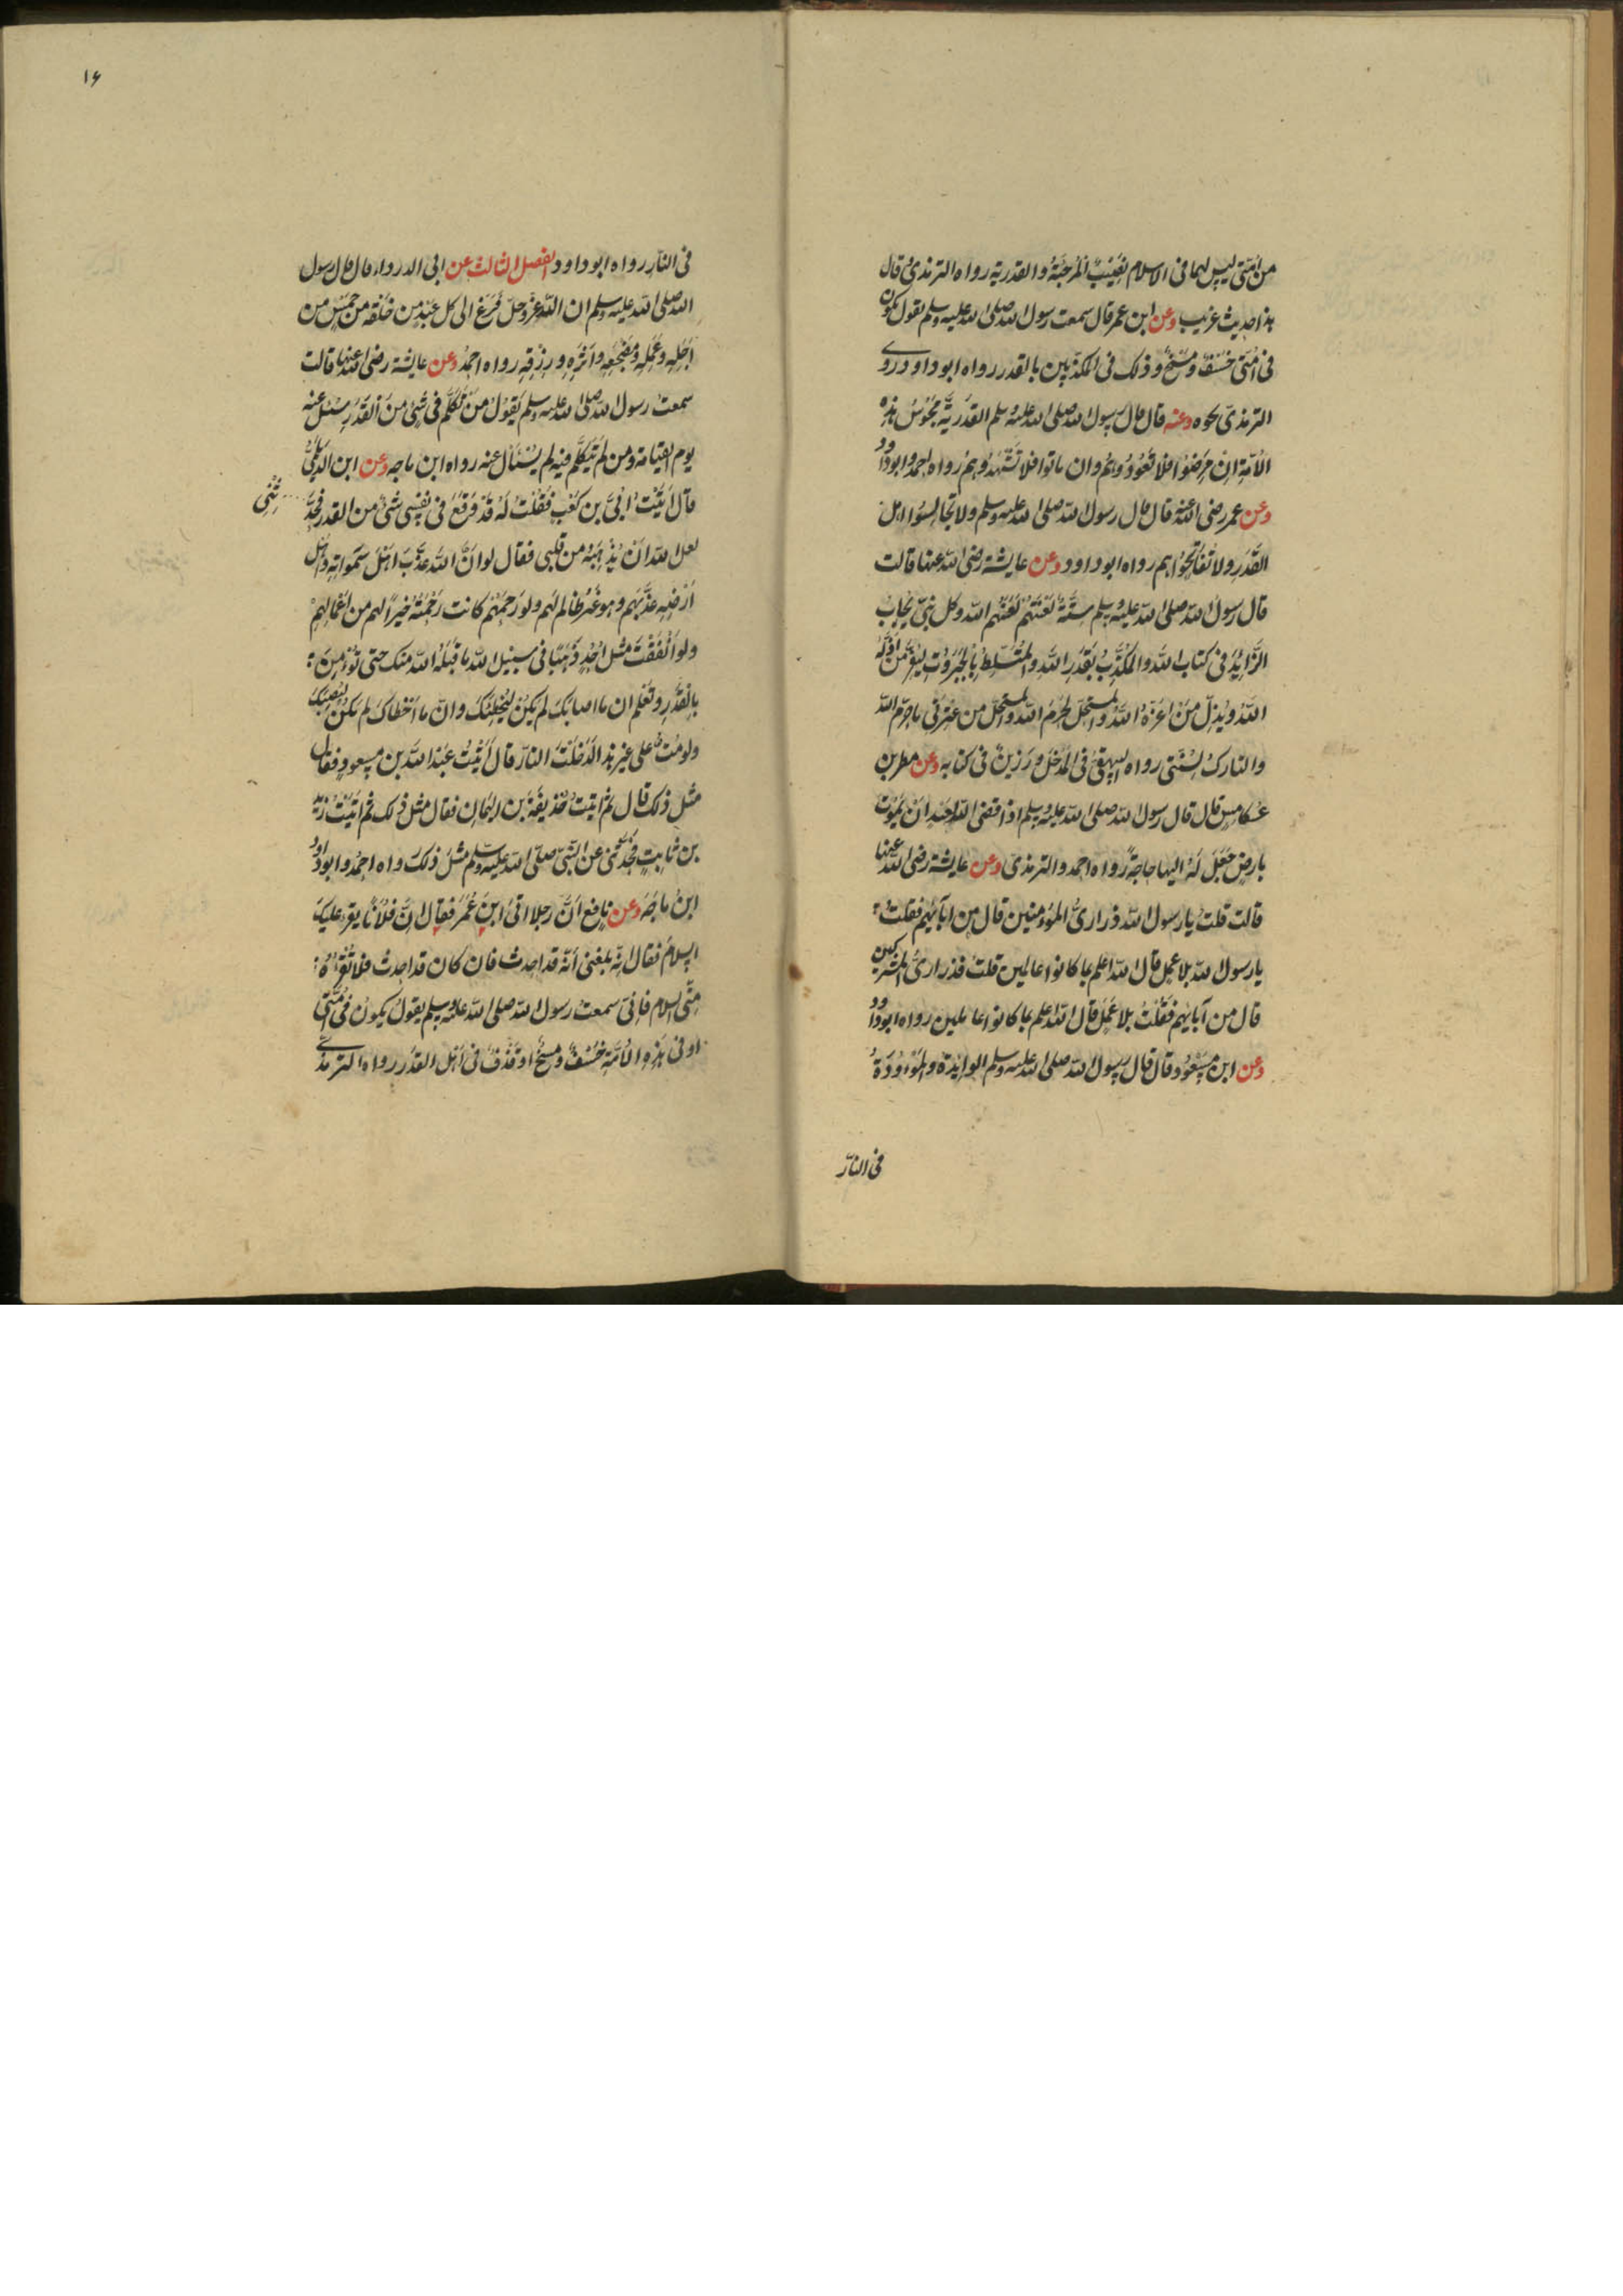 من امتى ليس لهما فى الاسلام نصيب المرجئة والقدرية رواه الترمذى وقال
هذا حديث غريب وعن ابن عمر قال سمعت رسول الله صلى الله عليه وسلم يقول يكون
فى امتى خسف ومسخ وذلك فى المكذبين بالقدر رواه ابو داود وروى
الترمذى نحوه وعنه قال قال رسول الله صلى الله عليه وسلم القدرية مجوس هذه
الامة ان مرضوا فلا تعودوهم وان ماتوا فلا تشهدوهم رواه احمد وابو داود
وعن عمر رضى الله عنه قال قال رسول الله صلى الله عليه وسلم ولا تجالسوا اهل
القدر ولا تفاتحوا هم رواه ابو داود وعن عايشة رضى الله عنها قالت
قال رسول الله صلى الله عليه وسلم ستة لعنتهم لعنهم الله وكل نبى يجاب
الزايد فى كتاب الله والمكذب بقدر الله والمتسلط بالجبروت ليعز من اذله
الله ويذل من اعزه الله والمستحل لحرم الله والمستحل من عترتى ما حرم الله
والتارك لسنتى رواه البيهقى فى المدخل ورزين فى كتابه وعن مطر بن
عكامس قال قال رسول الله صلى الله عليه وسلم اذا قضى الله لعبد ان يموت
بارض جعل له اليها حاجة رواه احمد والترمذى وعن عايشة رضى الله عنها
قالت قلت يا رسول الله ذرارى المؤمنين قال من ابآئهم فقلت
يا رسول الله بلا عمل قال الله اعلم بما كانوا عاملين قلت فذرارى المشركين
قال من آبايهم فقلت بلا عمل قال الله اعلم بما كانوا عاملين رواه ابو داود
وعن ابن مسعود قال قال رسول الله صلى الله عليه وسلم الوايدة والموؤدة
فى النار
١۶
فى النار رواه ابو داود الفصل الثالث عن ابى الدرداء قال قال رسول
الله صلى الله عليه وسلم ان الله عز وجل فرغ الى كل عبد من خلقه من خمس من
اجله وعمله ومضجعه واثره ورزقه رواه احمد وعن عايشة رضى الله عنها قالت
سمعت رسول الله صلى الله عليه وسلم يقول من تكلم فى شئ من القدر سئل عنه
يوم القيامة ومن لم يتكلم فيه لم يسئال عنه رواه ابن ماجه وعن ابن الديلمى
قال اتيت ابى بن كعب فقلت له قد وقع فى نفسى شئ من القدر فحد
ثنى
لعل الله ان يذهبه من قلبى فقال لو ان الله عذب اهل سمواته واهل
ارضه عذبهم وهو غير ظالم لهم ولو رحمهم كانت رحمته خيرا لهم من اعمالهم
ولو انفقت مثل احد ذهبا فى سبيل الله ما قبله الله منك حتى تؤمن
بالقدر وتعلم ان ما اصابك لم يكن ليخطئك وان ما اخطاك لم يكن ليصيبك
ولو مت على غير هذا لدخلت النار قال ثم اتيت عبد الله بن مسعود فقال
مثل ذلك قال ثم اتيت حذيفة بن اليمان فقال مثل ذلك ثم اتيت زيد
بن ثابت فحدثنى عن النبى صلى الله عليه وسلم مثل ذلك رواه احمد وابو داود
ابن ماجه وعن نافع ان رجلا اتى ابن عمر فقال ان فلانا يقرء عليك
السلام فقال انه بلغنى انه قد احدث فان كان قد احدث فلا تقرأه
منى السلام فانى سمعت رسول الله صلى الله عليه وسلم يقول يكون فى امتى
او فى هذه الامة خسف ومسخ او قذف فى اهل القدر رواه الترمذى